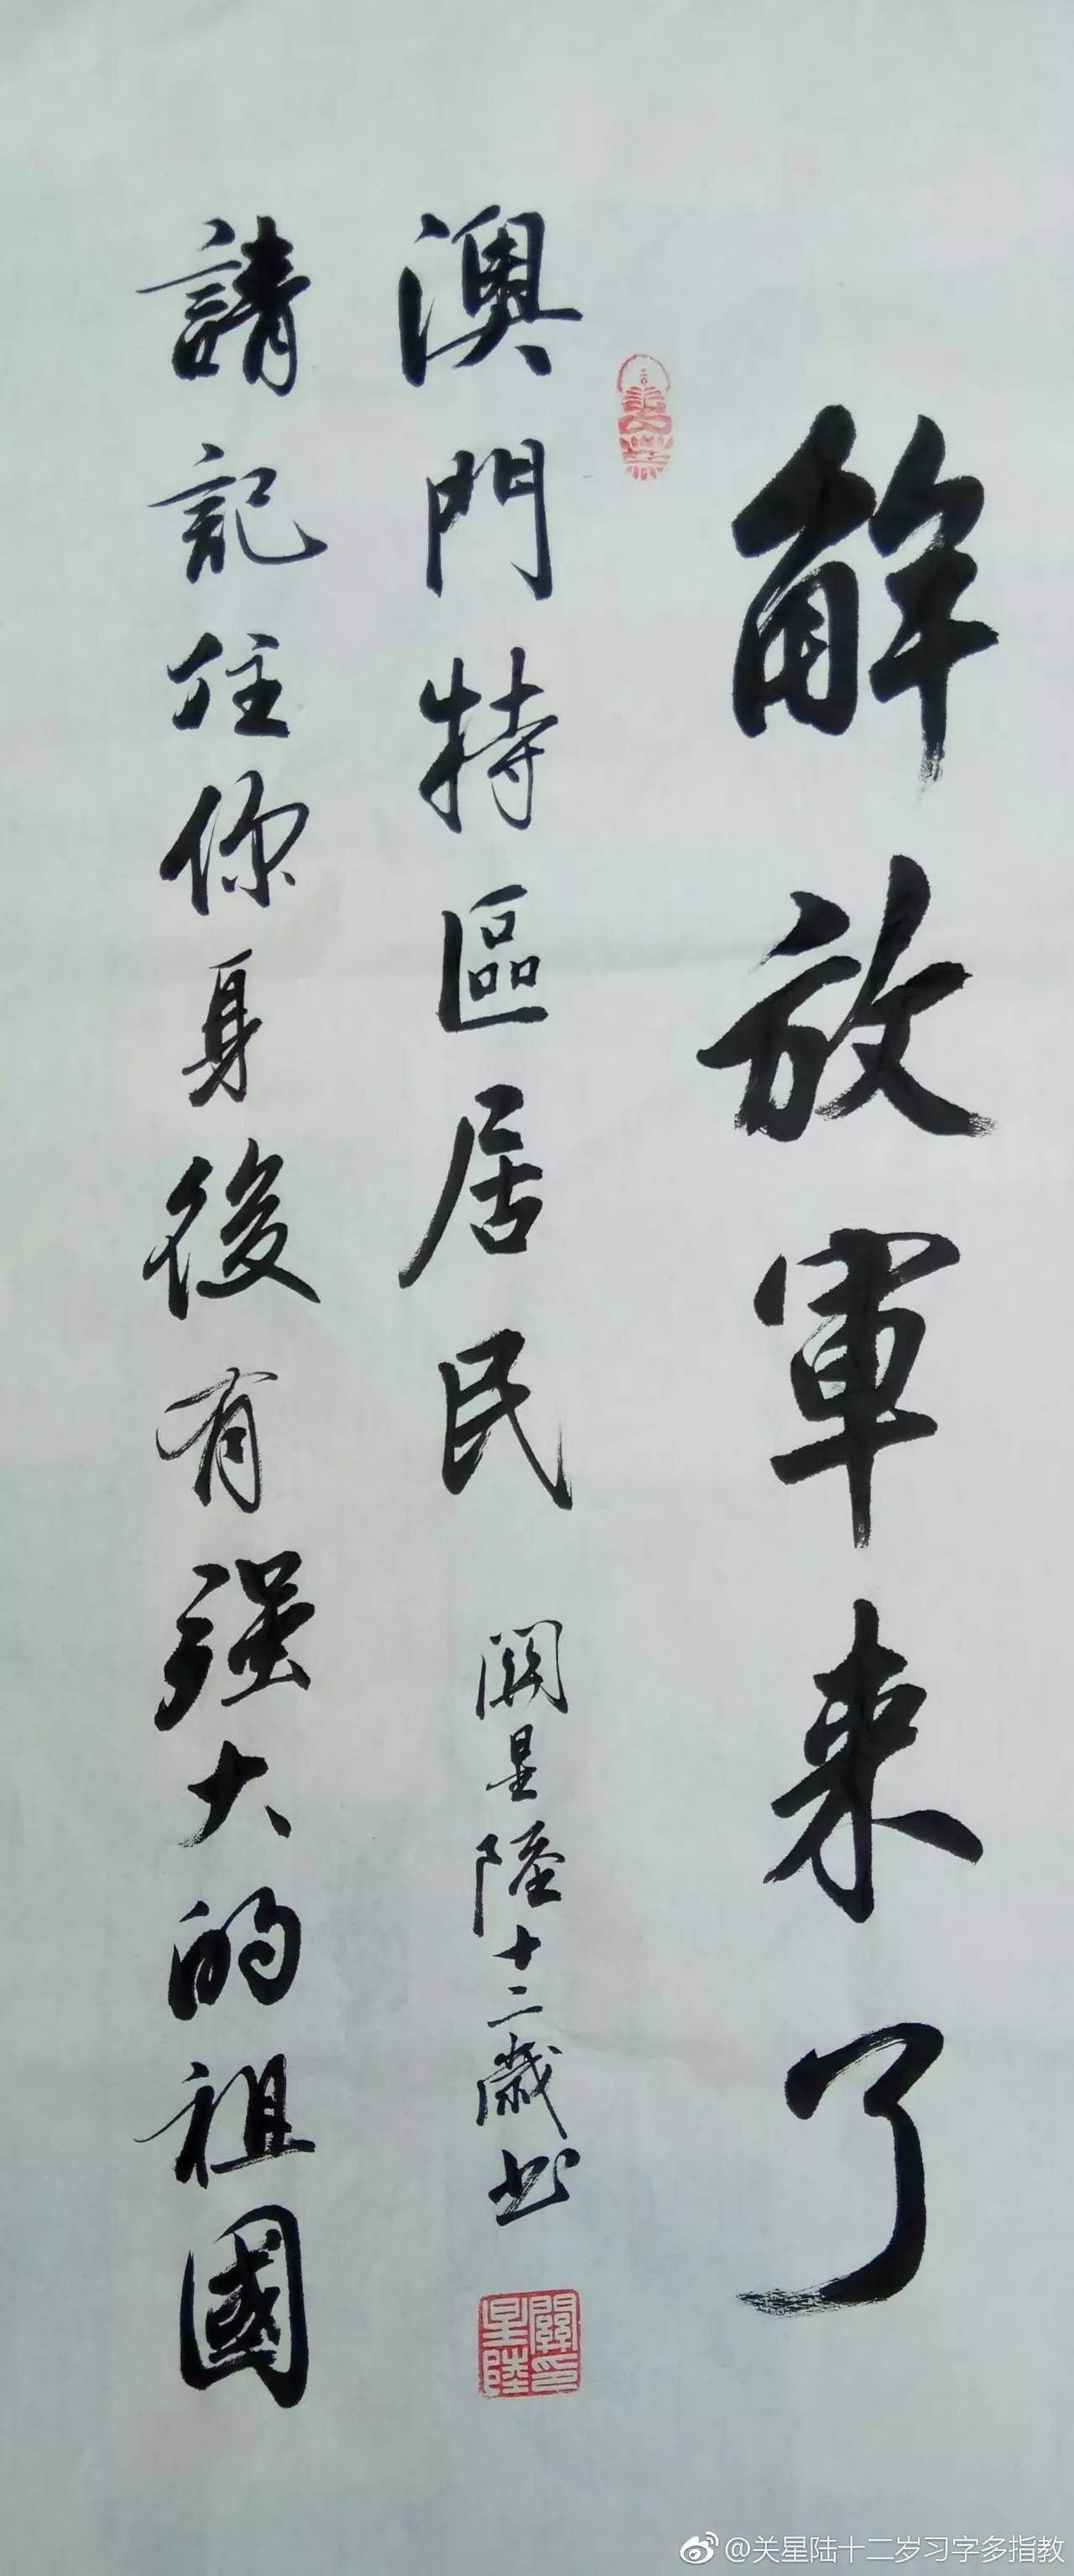 解放軍来了
澳門特區居民 關星陸十二歲书
請記住你身後有强大的祖國
關星陸印
@关星陆十二岁习字多指教